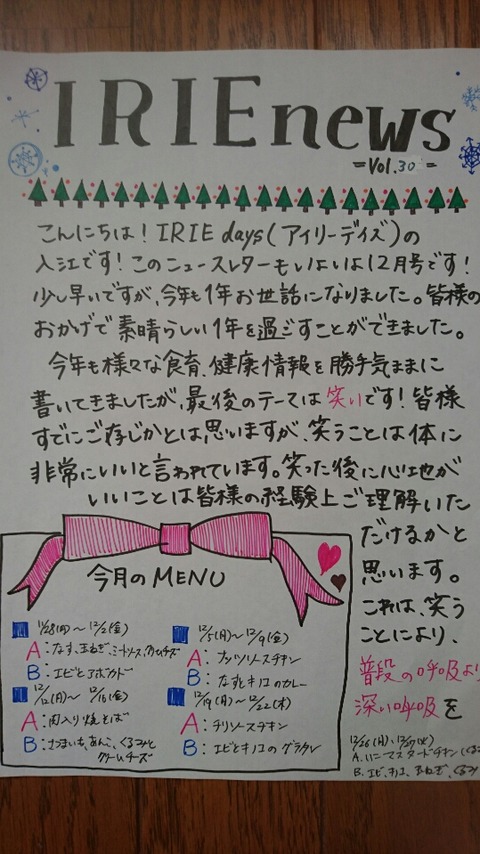 IRIE news
=Vol.30=
こんにちは！IRIE days（アイリーデイズ）の
入江です！このニュースレターもいよいよ12月号です！
少し早いですが、今年も1年お世話になりました。皆様の
おかげで素晴らしい1年を過ごすことができました。
今年も様々な食育、健康情報を勝手気ままに
書いてきましたが、最後のテーマは笑いです！皆様
すでにご存じかとは思いますが、笑うことは体に
非常にいいと言われています。笑った後に心地が
いいことは皆様の経験上ご理解いた
だけるかと
思います。
これは、笑う
ことにより、
普段の呼吸より
深い呼吸を
今月のMENU
11/28(月)～12/2(金)
A：なす、玉ねぎ、ミートソース、クリームチーズ
B：エビとアボカド
12/5(月)～12/9(金)
A：ナッツソースチキン
B：なすとキノコのカレー
12/12(月)～12/16(金)
A：肉入り焼そば
B：さつまいも、あんこ、くるみと
クリームチーズ
12/19(月)～12/22(木)
A：チリソースチキン
B：エビとキノコのグラタン
12/26(月)、12/27(火)
A.ハニーマスタードチキン
B.エビ、キノコ、玉ねぎ、くるみ